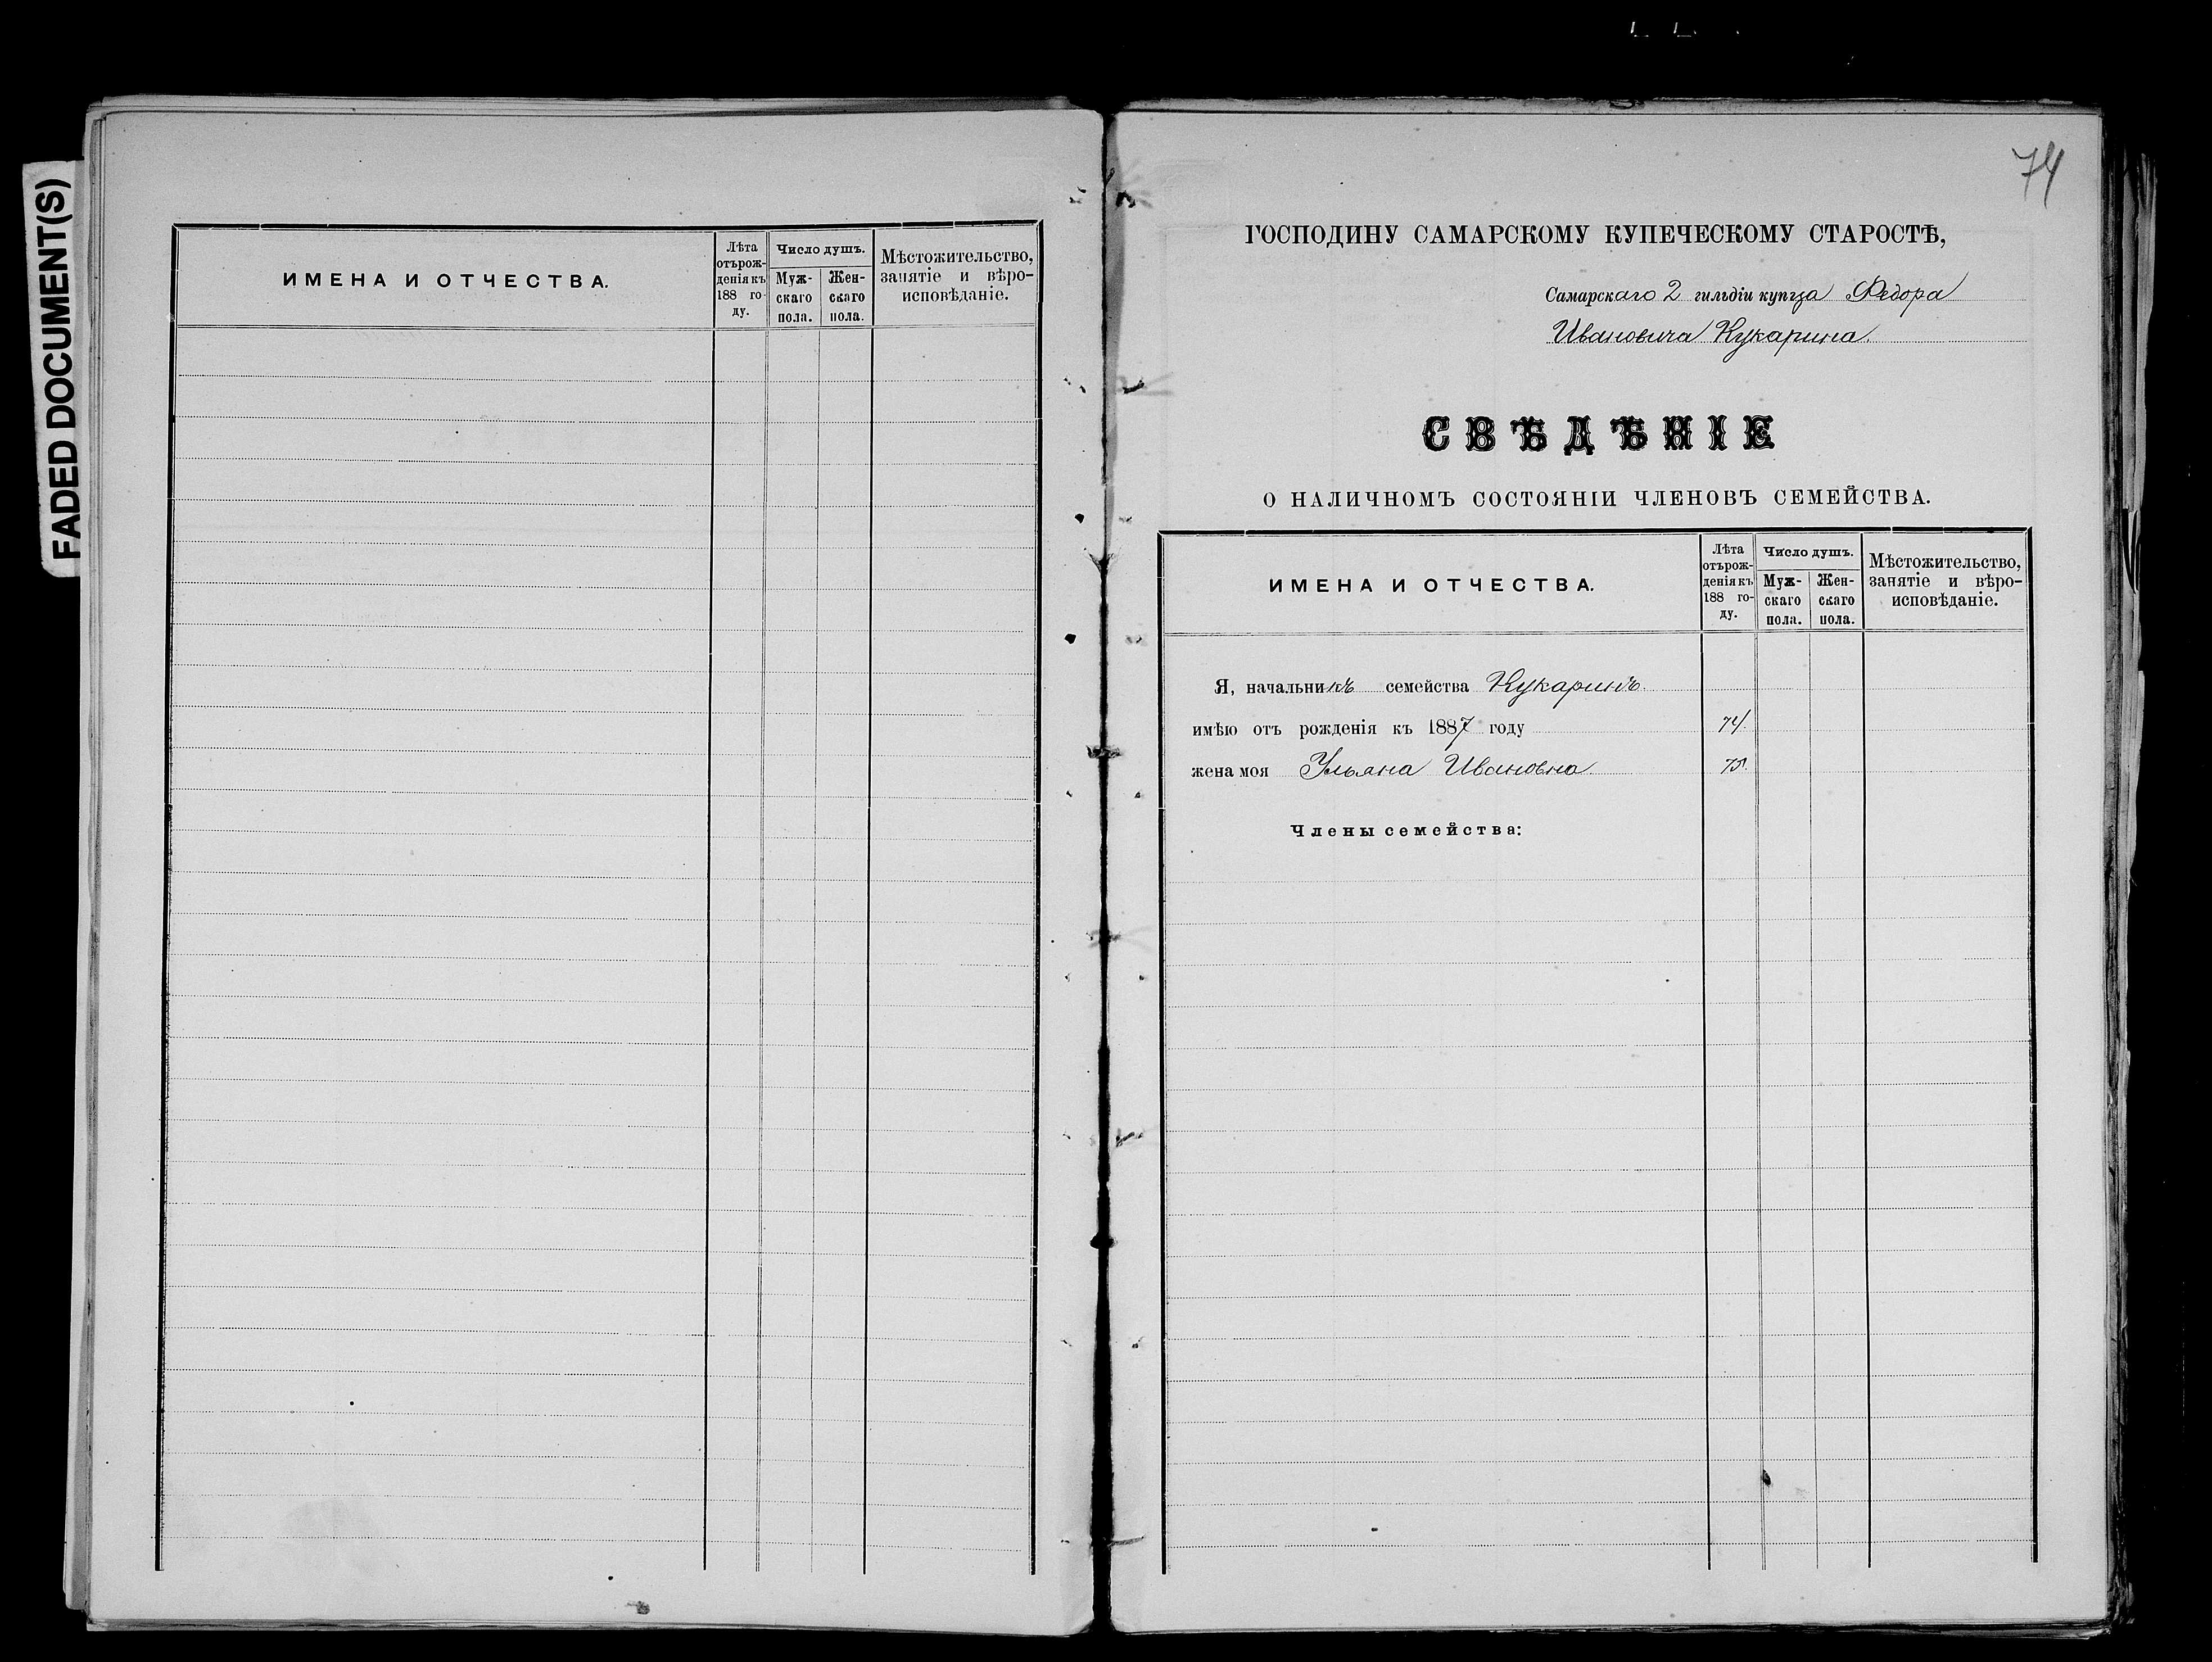 FADED DOCUMENT(S)
ИМЕНА И ОТЧЕСТВА.
Лѣта
отърож-
денія къ
188 го-
ду.
Число душъ.
Муж-
скаго
пола.
Жен-
скаго
пола.
Мѣстожительство,
занятіе и вѣро-
исповѣданіе.
74
ГОСПОДИНУ САМАРСКОМУ КУПЕЧЕСКОМУ СТАРОСТѢ,
Самарскаго 2 гильдіи купца Федора
Ивановича Кукарина.
СВѢДѢНІЕ
О НАЛИЧНОМЪ СОСТОЯНІИ ЧЛЕНОВЪ СЕМЕЙСТВА.
ИМЕНА И ОТЧЕСТВА.
Лѣта
отърож-
денія къ
188 го-
ду.
Число душъ.
Муж-
скаго
пола.
Жен-
скаго
пола.
Мѣстожительство,
занятіе и вѣро-
исповѣданіе.
Я, начальникъ семейства Кукаринъ.
имѣю отъ рожденія къ 1887 году 74.
жена моя Ульяна Ивановна 75.
Члены семейства: